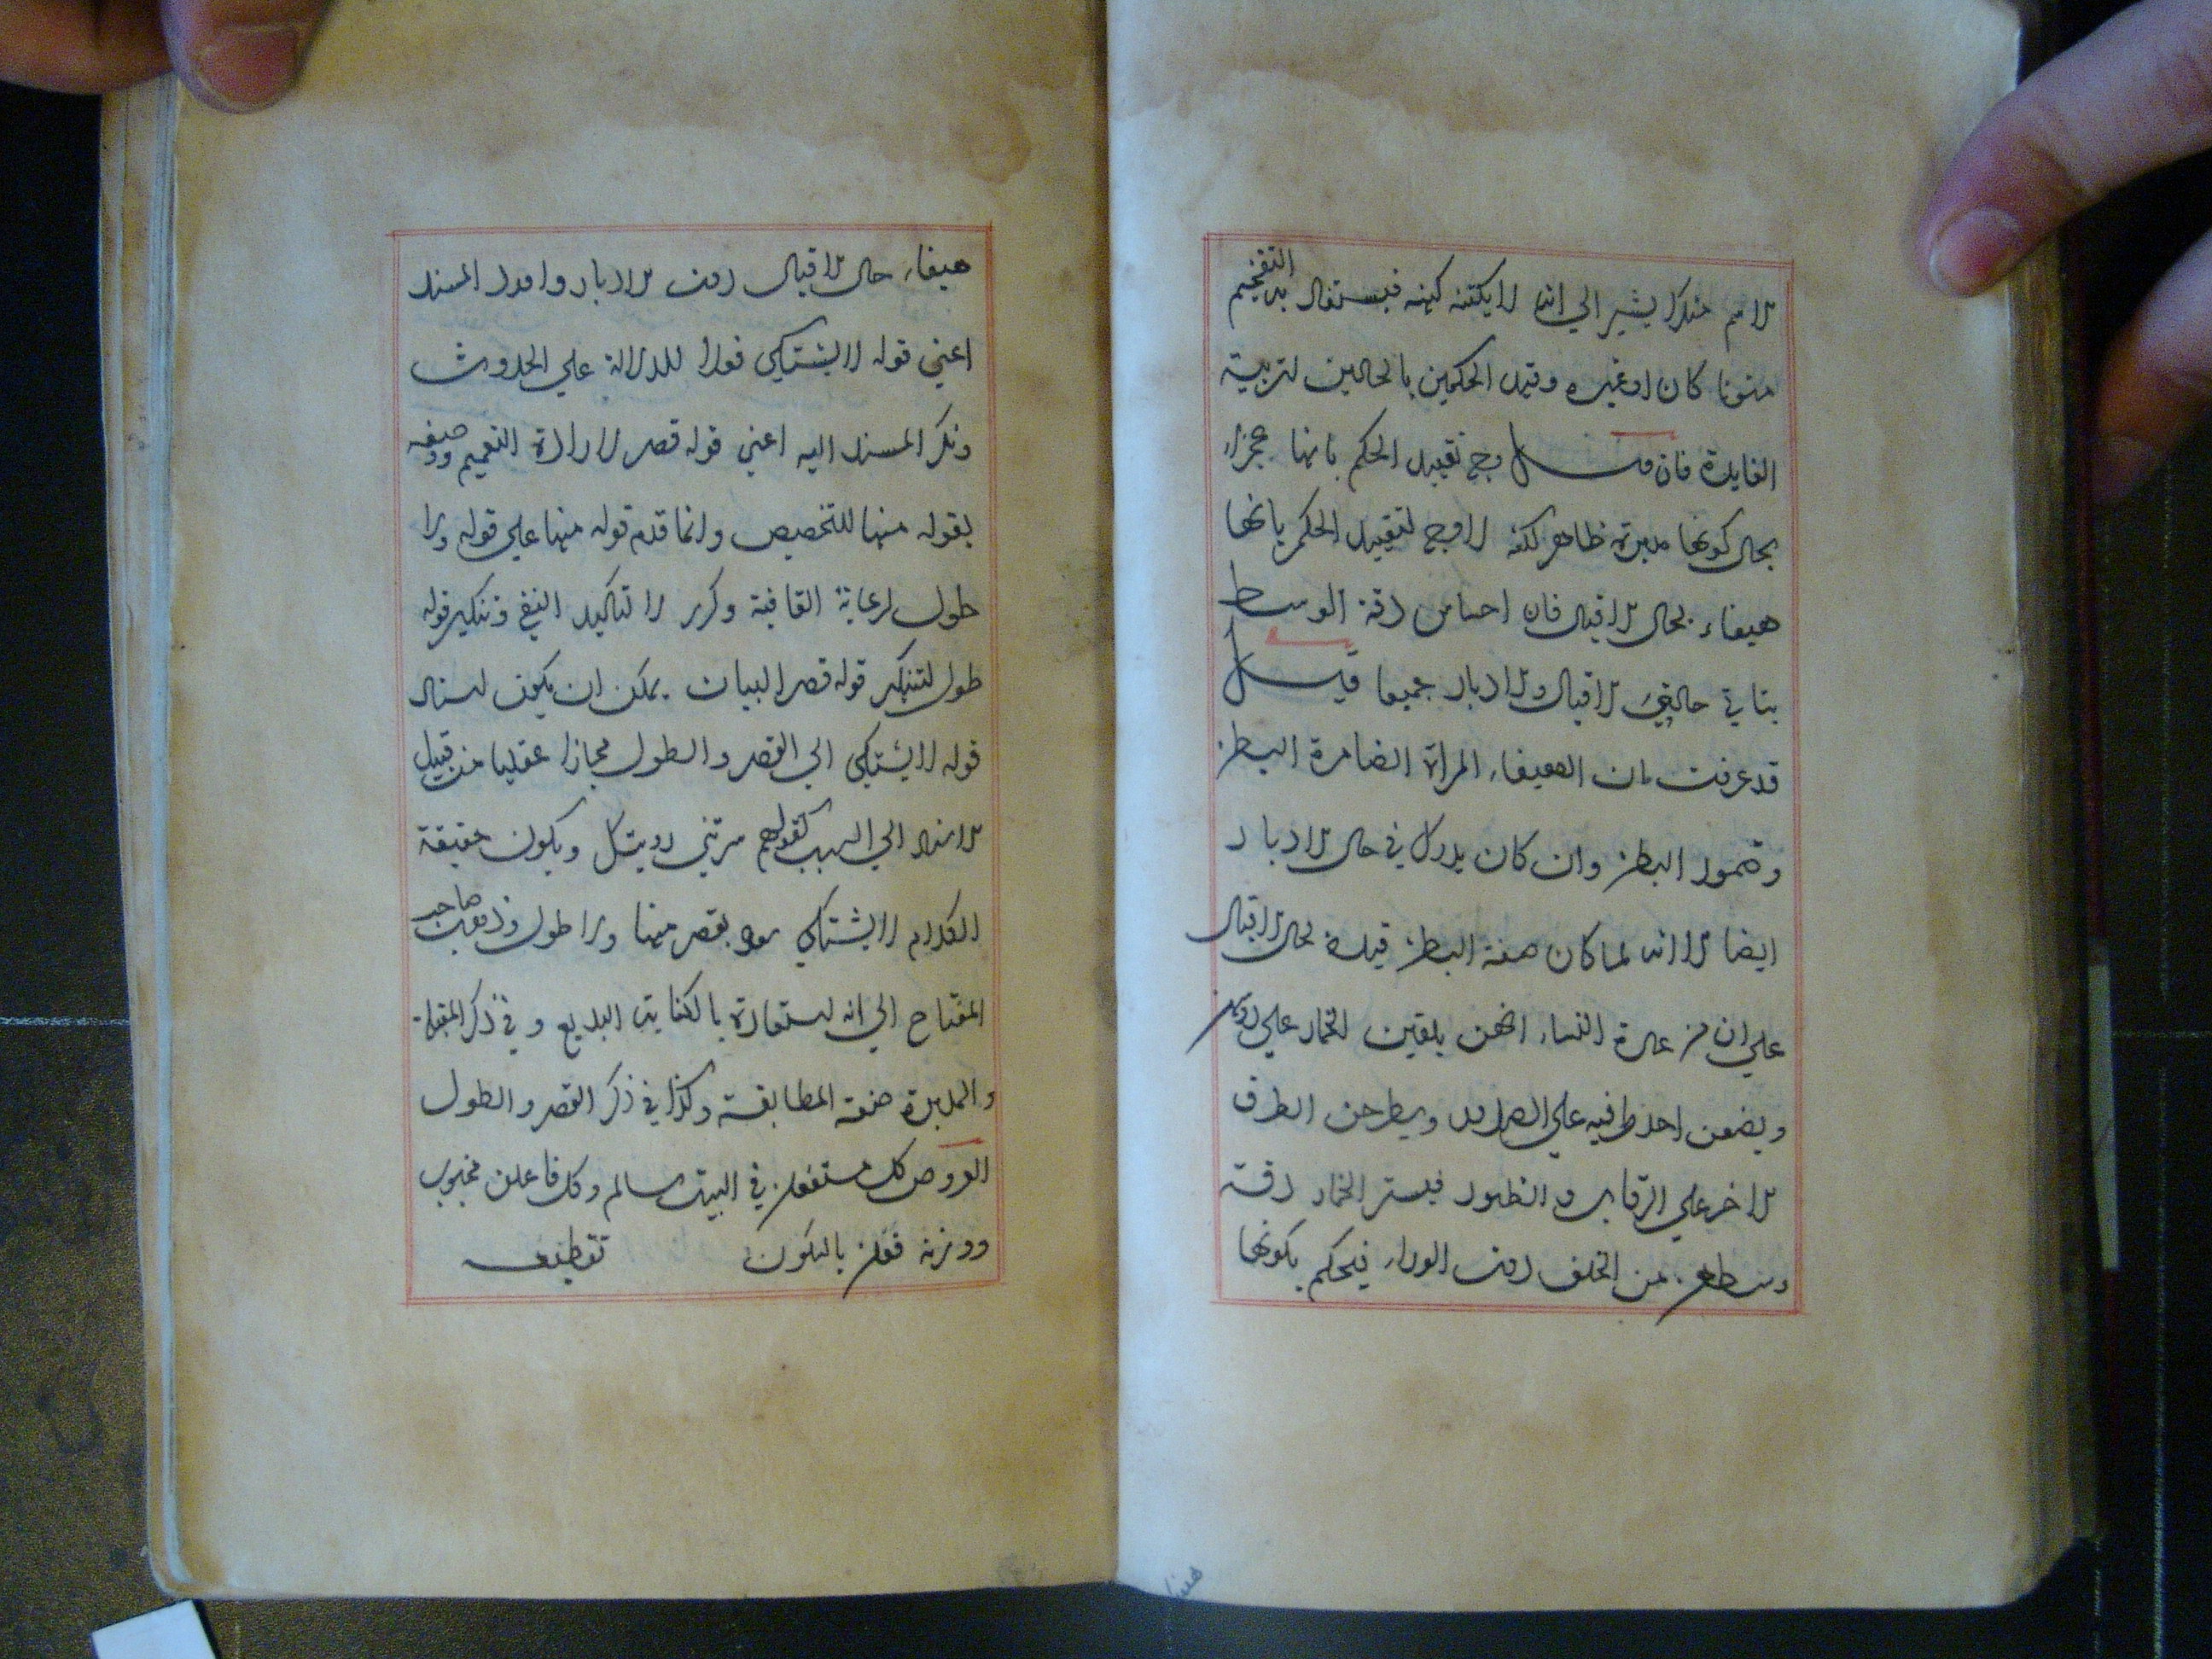 الاسم منكرا يشير الي انه لا يكتنه كنهه فيستفاد به التفخيم
منونا كان او غيره وقيد الحكمين بالحالين لتربية
الفايدة فان قيل وجه تقييد الحكم بانها عجزاء
بحال كونها مدبرة ظاهر لكنه لا وجه لتقييد الحكم بانها
هيفاء بحال الاقبال فان احساس دقة الوسط
يتاتي حالتي الاقبال والادبار جميعا قيل
قد عرفت ان الهيفاء المراة الضامرة البطن
وضمور البطن وان كان يدرك في حال الادبار
ايضا الا انه لما كان صفة البطن قيده بحال الاقبال
علي ان من عادة النساء انهن يلقين الخمار علي روسهن
ويضعن احد طرفيه علي الصدور ويطرحن الطرف
الاخر علي الرقاب والظهور فيستر الخمار دقة
وسطهن من الخلف دون الوراء فيحكم بكونها
هيفا
هيفاء حال الاقبال دون الادبار واورد المسند
اعني قوله لا يشتكي فعلا للدلالة علي الحدوث
ونكر المسند اليه اعني قوله قصر لارادة التعميم ووصفه
بقوله منها للتخصيص وانما قدم قوله منها علي قوله ولا
طول لرعاية القافية وكرر لا لتاكيد النفي وتنكير قوله
طول لتنكير قوله قصر البيان يمكن ان يكون اسناد
قوله لا يشتكي الي القصر والطول مجازا عقليا من قبيل
الاسناد الي السبب كقولهم سرتني رويتك ويكون حقيقة
الكلام لا يشتكي بقصر منها ولا طول وذهب صاحب
المفتاح الي انه استعارة بالكناية البديع وفي ذكر المقبلة
والمدبرة صنعة المطابقة وكذا في ذكر القصر والطول
العروض كل مستفعلن في البيت سالم وكل فاعلن مخبون
ووزنه فعلن بالسكون تقطيعه